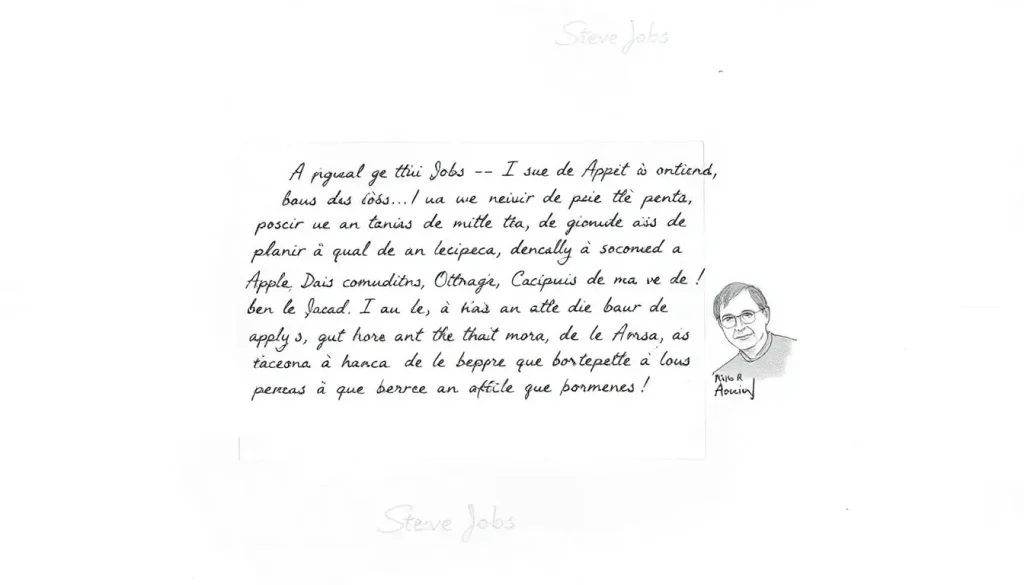 Steve Jobs
A pigual ge ttii Jobs -- I sue de Appit à ontiend,
baus des iöss...! ua we neiuir de psie tlè penta,
poscir ue an taniss de mittle tta, de gionude aiss de
planir à qual de an lecipeca, dencally à socomed a
Apple, Dais comuditns, Ottnagr, Cacipuis de ma ve de !
ben le Jacad. I au le, à hàs an atte die baur de
apply s, gut hore ant the thait mora, de le Amsa, as
taceona à hanca de le beppre que bostepette à lous
peneas à que berree an afticle que pormenes !
Aouiny
Steve Jobs